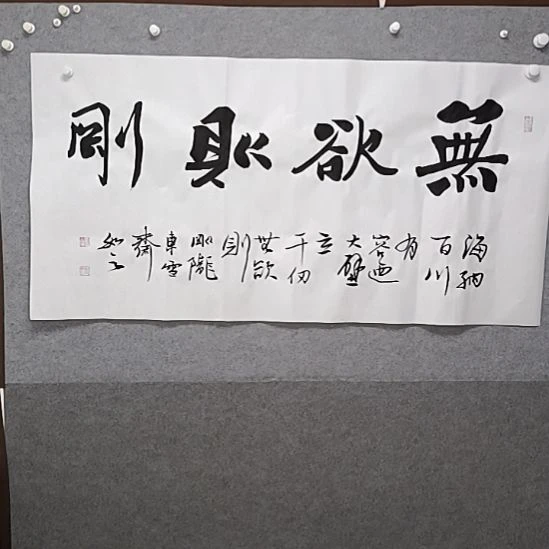 無欲則剛
海納
百川
有
容迺
大壁
立
千仞
無欲
則
剛隴
東雪
齋